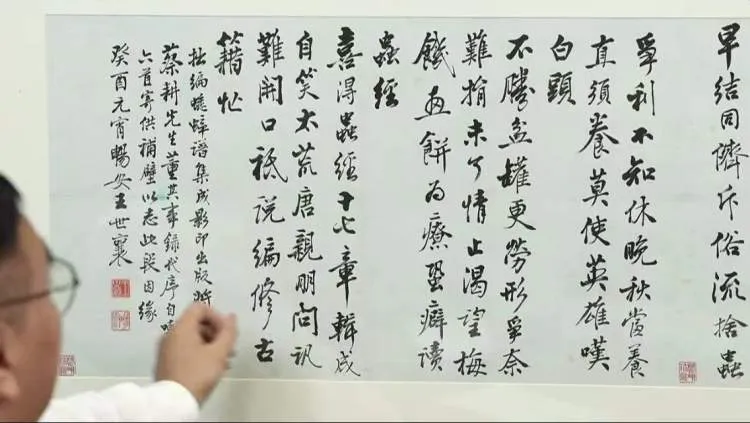 早結同儕斥俗流捨蟲
爭利不知休晚秋當養
直須養莫使英雄嘆
白頭
不勝盆罐更勞形爭奈
難捐未了情止渴望梅
饑画餅為療蛩癖讀
蟲經
喜得蟲經十七章輯成
自笑太荒唐親朋問訊
難開口祇說編修古
籍忙
拙編蟋蟀譜集成影印出版
蔡耕先生董其事錄我序自
六首寄供補壁以志此段因緣
癸酉元宵暢安王世襄